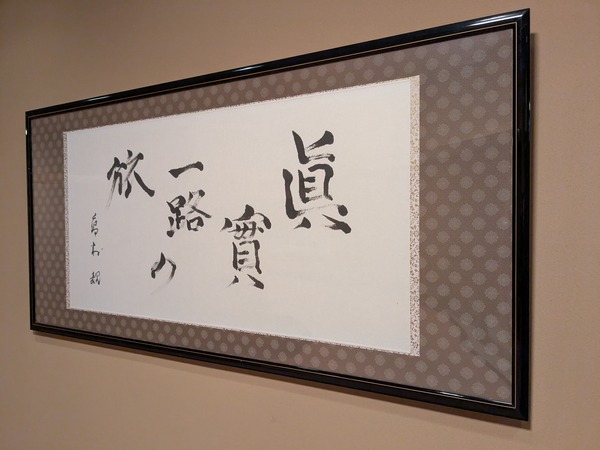 眞
實
一路の
旅